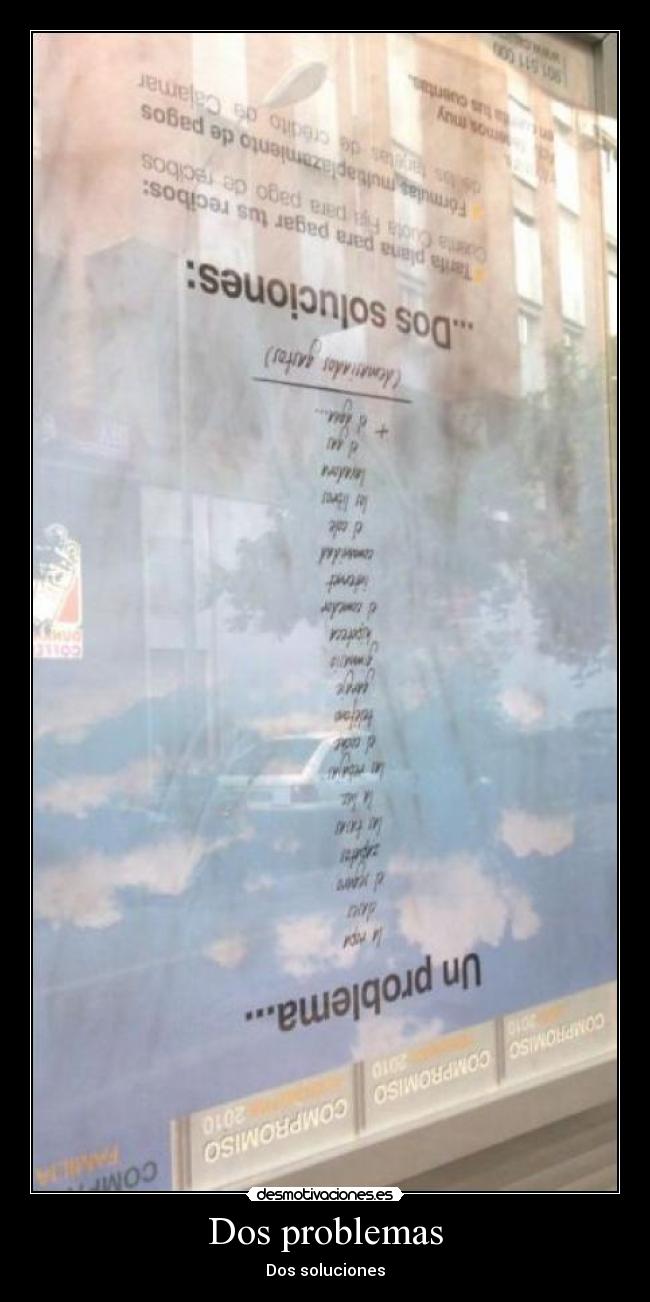 COMPROMISO
2010
COMPROMISO
2010
COMPROMISO
2010
FAMILIA
Un problema...
la ropa
clases
el seguro
zapatos
las tasas
la luz
las rebajas
el coche
teléfono
garaje
gimnasio
hipoteca
el comedor
internet
comunidad
el cole
los libros
lavadora
el gas
+ el agua...
(demasiados gastos)
...Dos soluciones:
Tarifa plana para pagar tus recibos:
Cuenta Cuota Fija para pago de recibos
Fórmulas multiaplazamiento de pagos
de las tarjetas de crédito de Cajamar
muy
tus cuentas.
901 511 000
COFFEE
desmotivaciones.es
Dos problemas
Dos soluciones